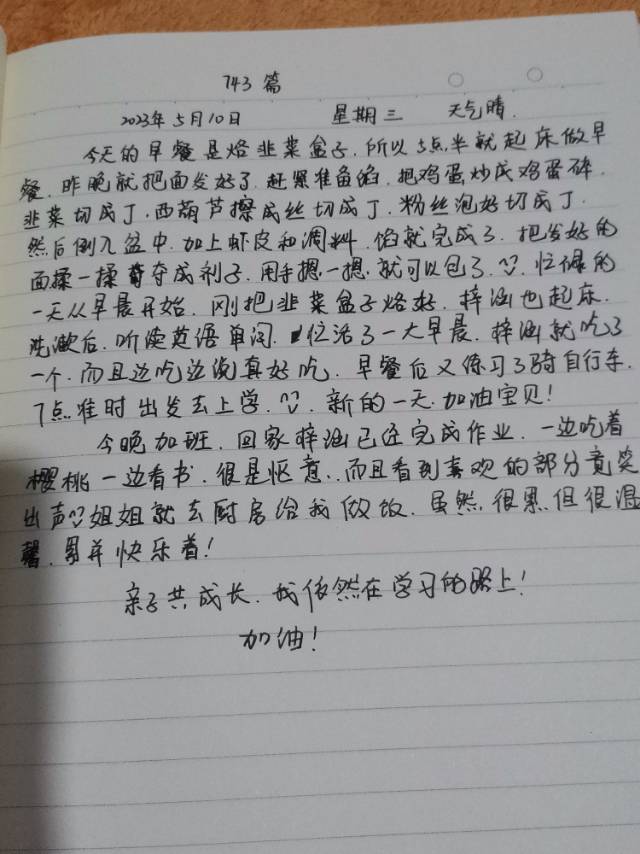 743篇
2023年5月10日 星期三 天气晴.
今天的早餐是烙韭菜盒子.所以5点半就起床做早
餐.昨晚就把面发好了.赶紧准备馅.把鸡蛋炒成鸡蛋碎.
韭菜切成丁.西葫芦擦成丝切成丁.粉丝泡好切成丁.
然后倒入盆中.加上虾皮和调料.馅就完成了.把发好的
面揉一揉成剂子.用手摁一摁.就可以包了.忙碌的
一天从早晨开始.刚把韭菜盒子烙好.梓涵也起床.
洗漱后.听读英语单词.忙活了一大早晨.梓涵就吃了
一个.而且边吃边说真好吃.早餐后又练习了骑自行车.
7点准时出发去上学.新的一天.加油宝贝!
今晚加班.回家梓涵已经完成作业.一边吃着
樱桃一边看书.很是惬意.而且看到喜欢的部分竟笑
出声 姐姐就去厨房给我做饭.虽然很累但很温
馨.累并快乐着!
亲子共成长.我依然在学习的路上!
加油!